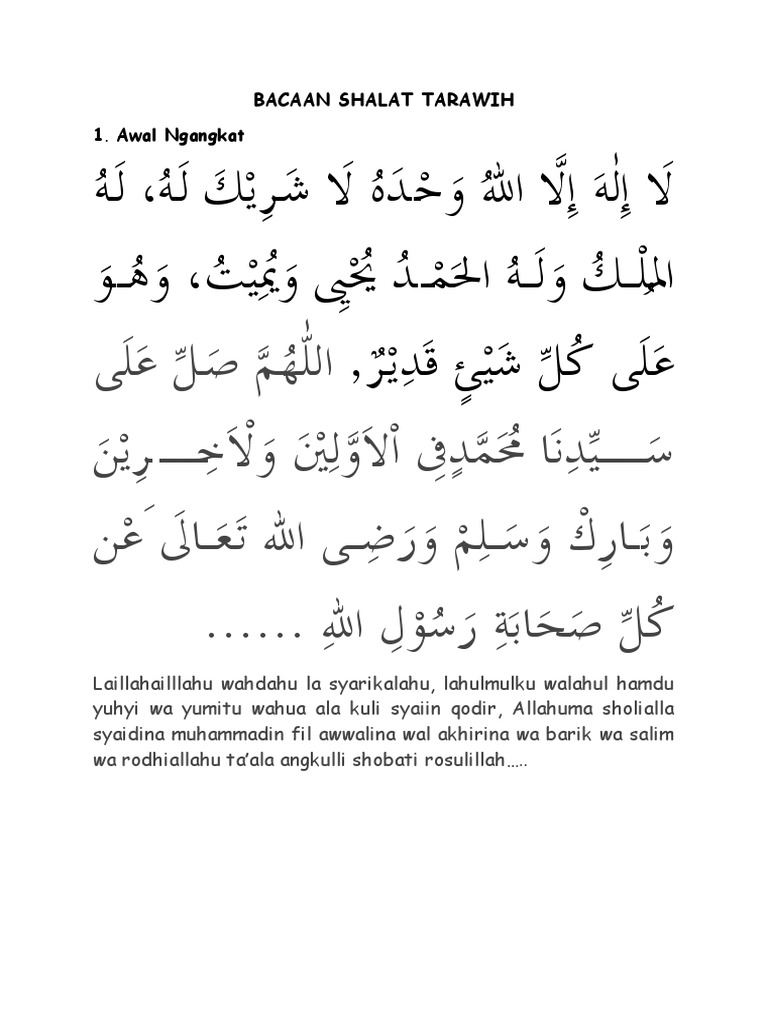 BACAAN SHALAT TARAWIH
1. Awal Ngangkat
لَا إِلٰهَ إِلَّا اللهُ وَحْدَهُ لَا شَرِيْكَ لَهُ، لَهُ
المُلْكُ وَلَهُ الحَمْدُ يُحْيِى وَيُمِيْتُ، وَهُوَ
عَلَى كُلِّ شَيْئٍ قَدِيْرٌ, اللّٰهُمَّ صَلِّ عَلَى
سَيِّدِنَا مُحَمَّدٍفِى اْلاَوَّلِيْنَ وَلْاَخِرِيْنَ
وَبَارِكْ وَسَلِمْ وَرَضِى الله تَعَالَى َعْن
كُلِّ صَحَابَةِ رَسُوْلِ اللهِ ......
Laillahailllahu wahdahu la syarikalahu, lahulmulku walahul hamdu
yuhyi wa yumitu wahua ala kuli syaiin qodir, Allahuma sholialla
syaidina muhammadin fil awwalina wal akhirina wa barik wa salim
wa rodhiallahu ta’ala angkulli shobati rosulillah…..